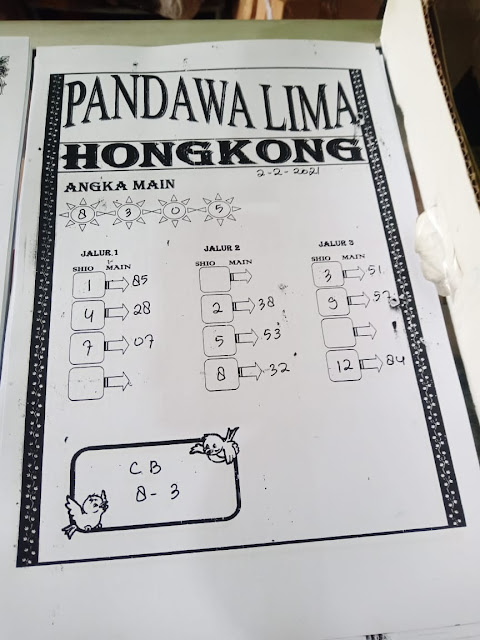 PANDAWA LIMA
HONGKONG
2-2-2021
ANGKA MAIN
8 3 0 5
JALUR 1
SHIO MAIN
1 85
4 28
7 07
JALUR 2
SHIO MAIN
2 38
5 53
8 32
JALUR 3
SHIO MAIN
3 51
9 57
12 84
CB
8-3